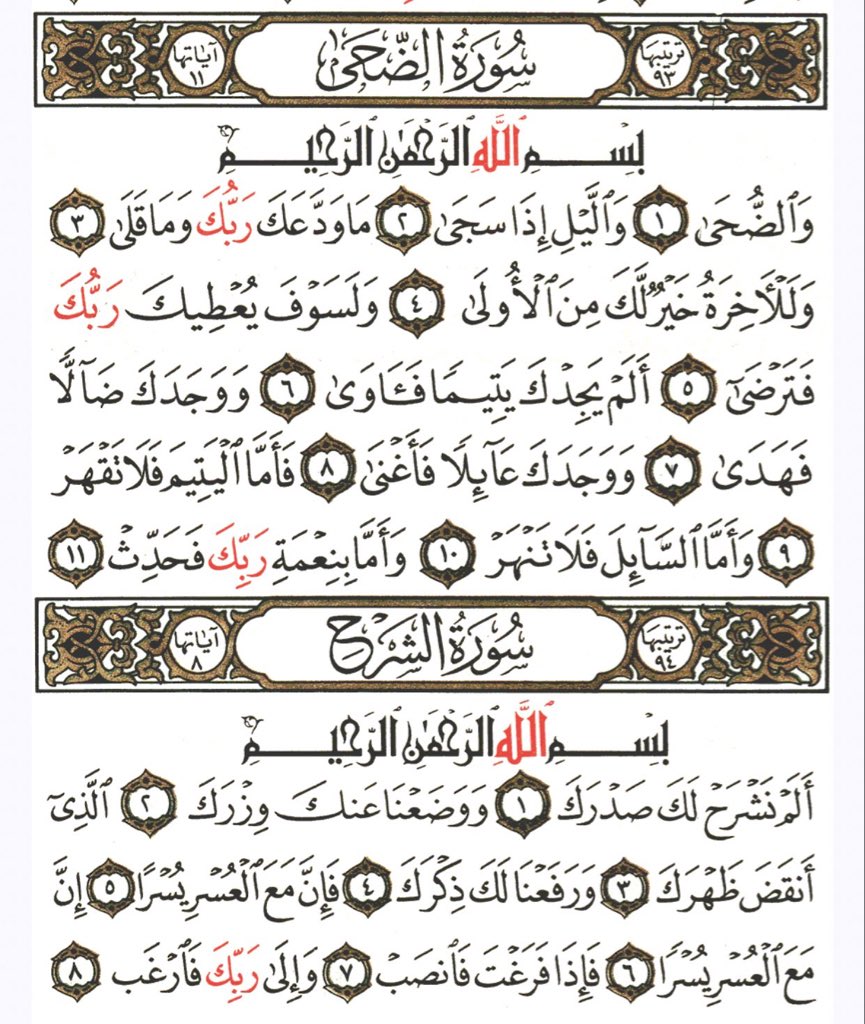 ترتيبها ٩٣ سُورَةُ الضُّحَىٰ آياتها ١١
بِسْمِ ٱللَّهِ ٱلرَّحْمَٰنِ ٱلرَّحِيمِ
وَٱلضُّحَىٰ ١ وَٱلَّيْلِ إِذَا سَجَىٰ ٢ مَا وَدَّعَكَ رَبُّكَ وَمَا قَلَىٰ ٣
وَلَلْأَخِرَةُ خَيْرٌ لَّكَ مِنَ ٱلْأُولَىٰ ٤ وَلَسَوْفَ يُعْطِيكَ رَبُّكَ
فَتَرْضَىٰٓ ٥ أَلَمْ يَجِدْكَ يَتِيمًا فَـَٔاوَىٰ ٦ وَوَجَدَكَ ضَآلًّا
فَهَدَىٰ ٧ وَوَجَدَكَ عَآئِلًا فَأَغْنَىٰ ٨ فَأَمَّا ٱلْيَتِيمَ فَلَا تَقْهَرْ
٩ وَأَمَّا ٱلسَّآئِلَ فَلَا تَنْهَرْ ١٠ وَأَمَّا بِنِعْمَةِ رَبِّكَ فَحَدِّثْ ١١
ترتيبها ٩٤ سُورَةُ الشَّرْحِ آياتها ٨
بِسْمِ ٱللَّهِ ٱلرَّحْمَٰنِ ٱلرَّحِيمِ
أَلَمْ نَشْرَحْ لَكَ صَدْرَكَ ١ وَوَضَعْنَا عَنكَ وِزْرَكَ ٢ ٱلَّذِىٓ
أَنقَضَ ظَهْرَكَ ٣ وَرَفَعْنَا لَكَ ذِكْرَكَ ٤ فَإِنَّ مَعَ ٱلْعُسْرِ يُسْرًا ٥ إِنَّ
مَعَ ٱلْعُسْرِ يُسْرًا ٦ فَإِذَا فَرَغْتَ فَٱنصَبْ ٧ وَإِلَىٰ رَبِّكَ فَٱرْغَب ٨